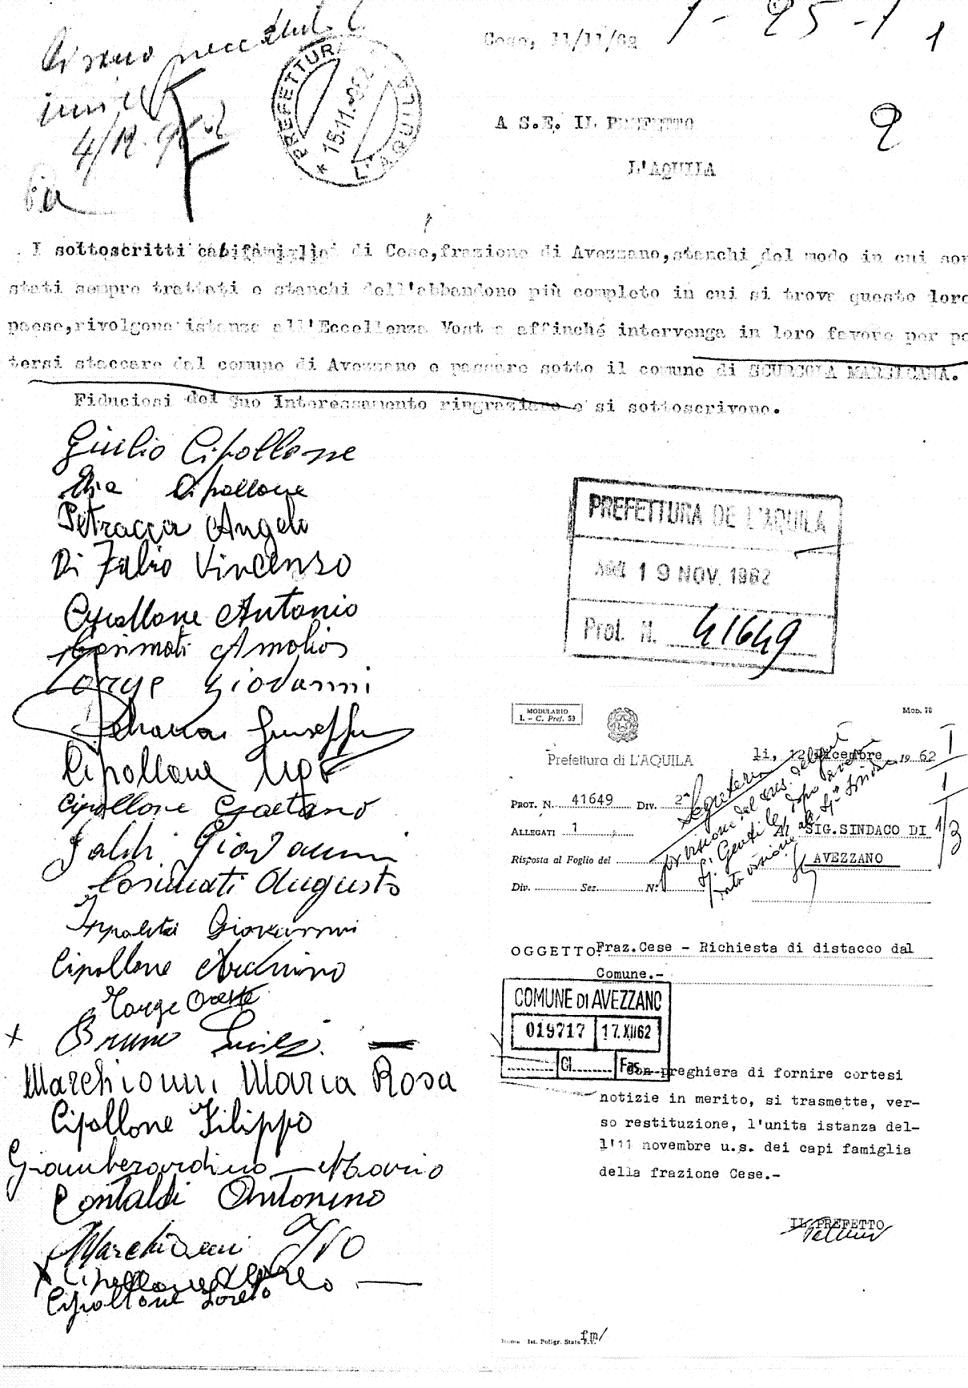 Cese, 11/11/62
1-25-1
1
2
4/12.962
PREFETTURA
15.11.962
L'AQUILA
A S.E. IL PREFETTO
L'AQUILA
I sottoscritti capifamiglia di Cese,frazione di Avezzano,stanchi del modo in cui son
stati sempre trattati e stanchi dell'abbandono più completo in cui si trova questo loro
paese,rivolgono istanza all'Eccellenza Vostra affinché intervenga in loro favore per po
tersi staccare dal comune di Avezzano e passare sotto il comune di SCURCOLA MARSICANA.
Fiduciosi del Suo Interessamento ringraziano e si sottoscrivono.
Giulio Cipollone
Cipollone
Petracca Angelo
Di Fabio Vincenzo
Cipollone Antonio
Cosimati
Torge Giovanni
Petracca Giuseppe
Cipollone Ugo
Cipollone Gaetano
Giovanni
Cosimati Augusto
Ippoliti Giovanni
Cipollone
Torge Oreste
Bruno
Marchionni Maria Rosa
Cipollone Filippo
Giamberardino Mario
Contaldi Antonino
Marchionni Ivo
Cipollone
Cipollone Loreto
PREFETTURA DE L'AQUILA
19 NOV. 1962
Prot. N. 41649
MODULARIO
I. - C. Pref. 50
Mod. 70
Prefettura di L'AQUILA
li, 12 Dicembre 1962
PROT. N. 41649 Div. 2ª
ALLEGATI 1
AL SIG.SINDACO DI
Risposta al Foglio del
AVEZZANO
Div. Sez. N.
Segreteria
I
1
1/3
OGGETTO: Fraz.Cese - Richiesta di distacco dal
Comune.-
COMUNE DI AVEZZANO
019717 17.XII62
Cl. Fas.
Con preghiera di fornire cortesi
notizie in merito, si trasmette, ver-
so restituzione, l'unita istanza del-
l'11 novembre u.s. dei capi famiglia
della frazione Cese.-
IL PREFETTO
Roma - Ist. Poligr. Stato P.V.
fm/